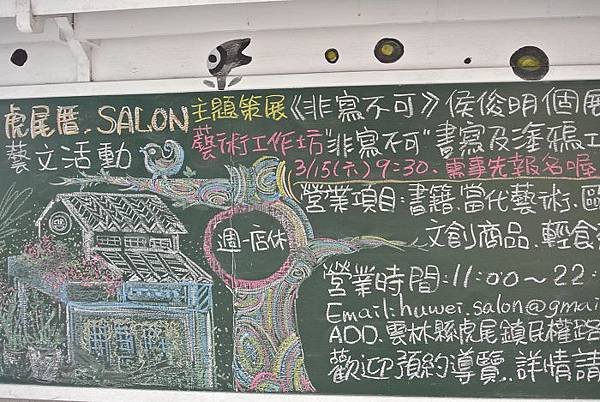 虎尾厝.SALON
藝文活動
主題策展《非寫不可》侯俊明個展
藝術工作坊"非寫不可"書寫及塗鴉工
3/15(六)9:30.需事先報名喔
週一店休
營業項目:書籍.當代藝術.歐
文創商品.輕食
營業時間:11:00~22:
Email:huwei.salon@gmai
ADD.雲林縣虎尾鎮民權路
歡迎預約導覽.詳情請